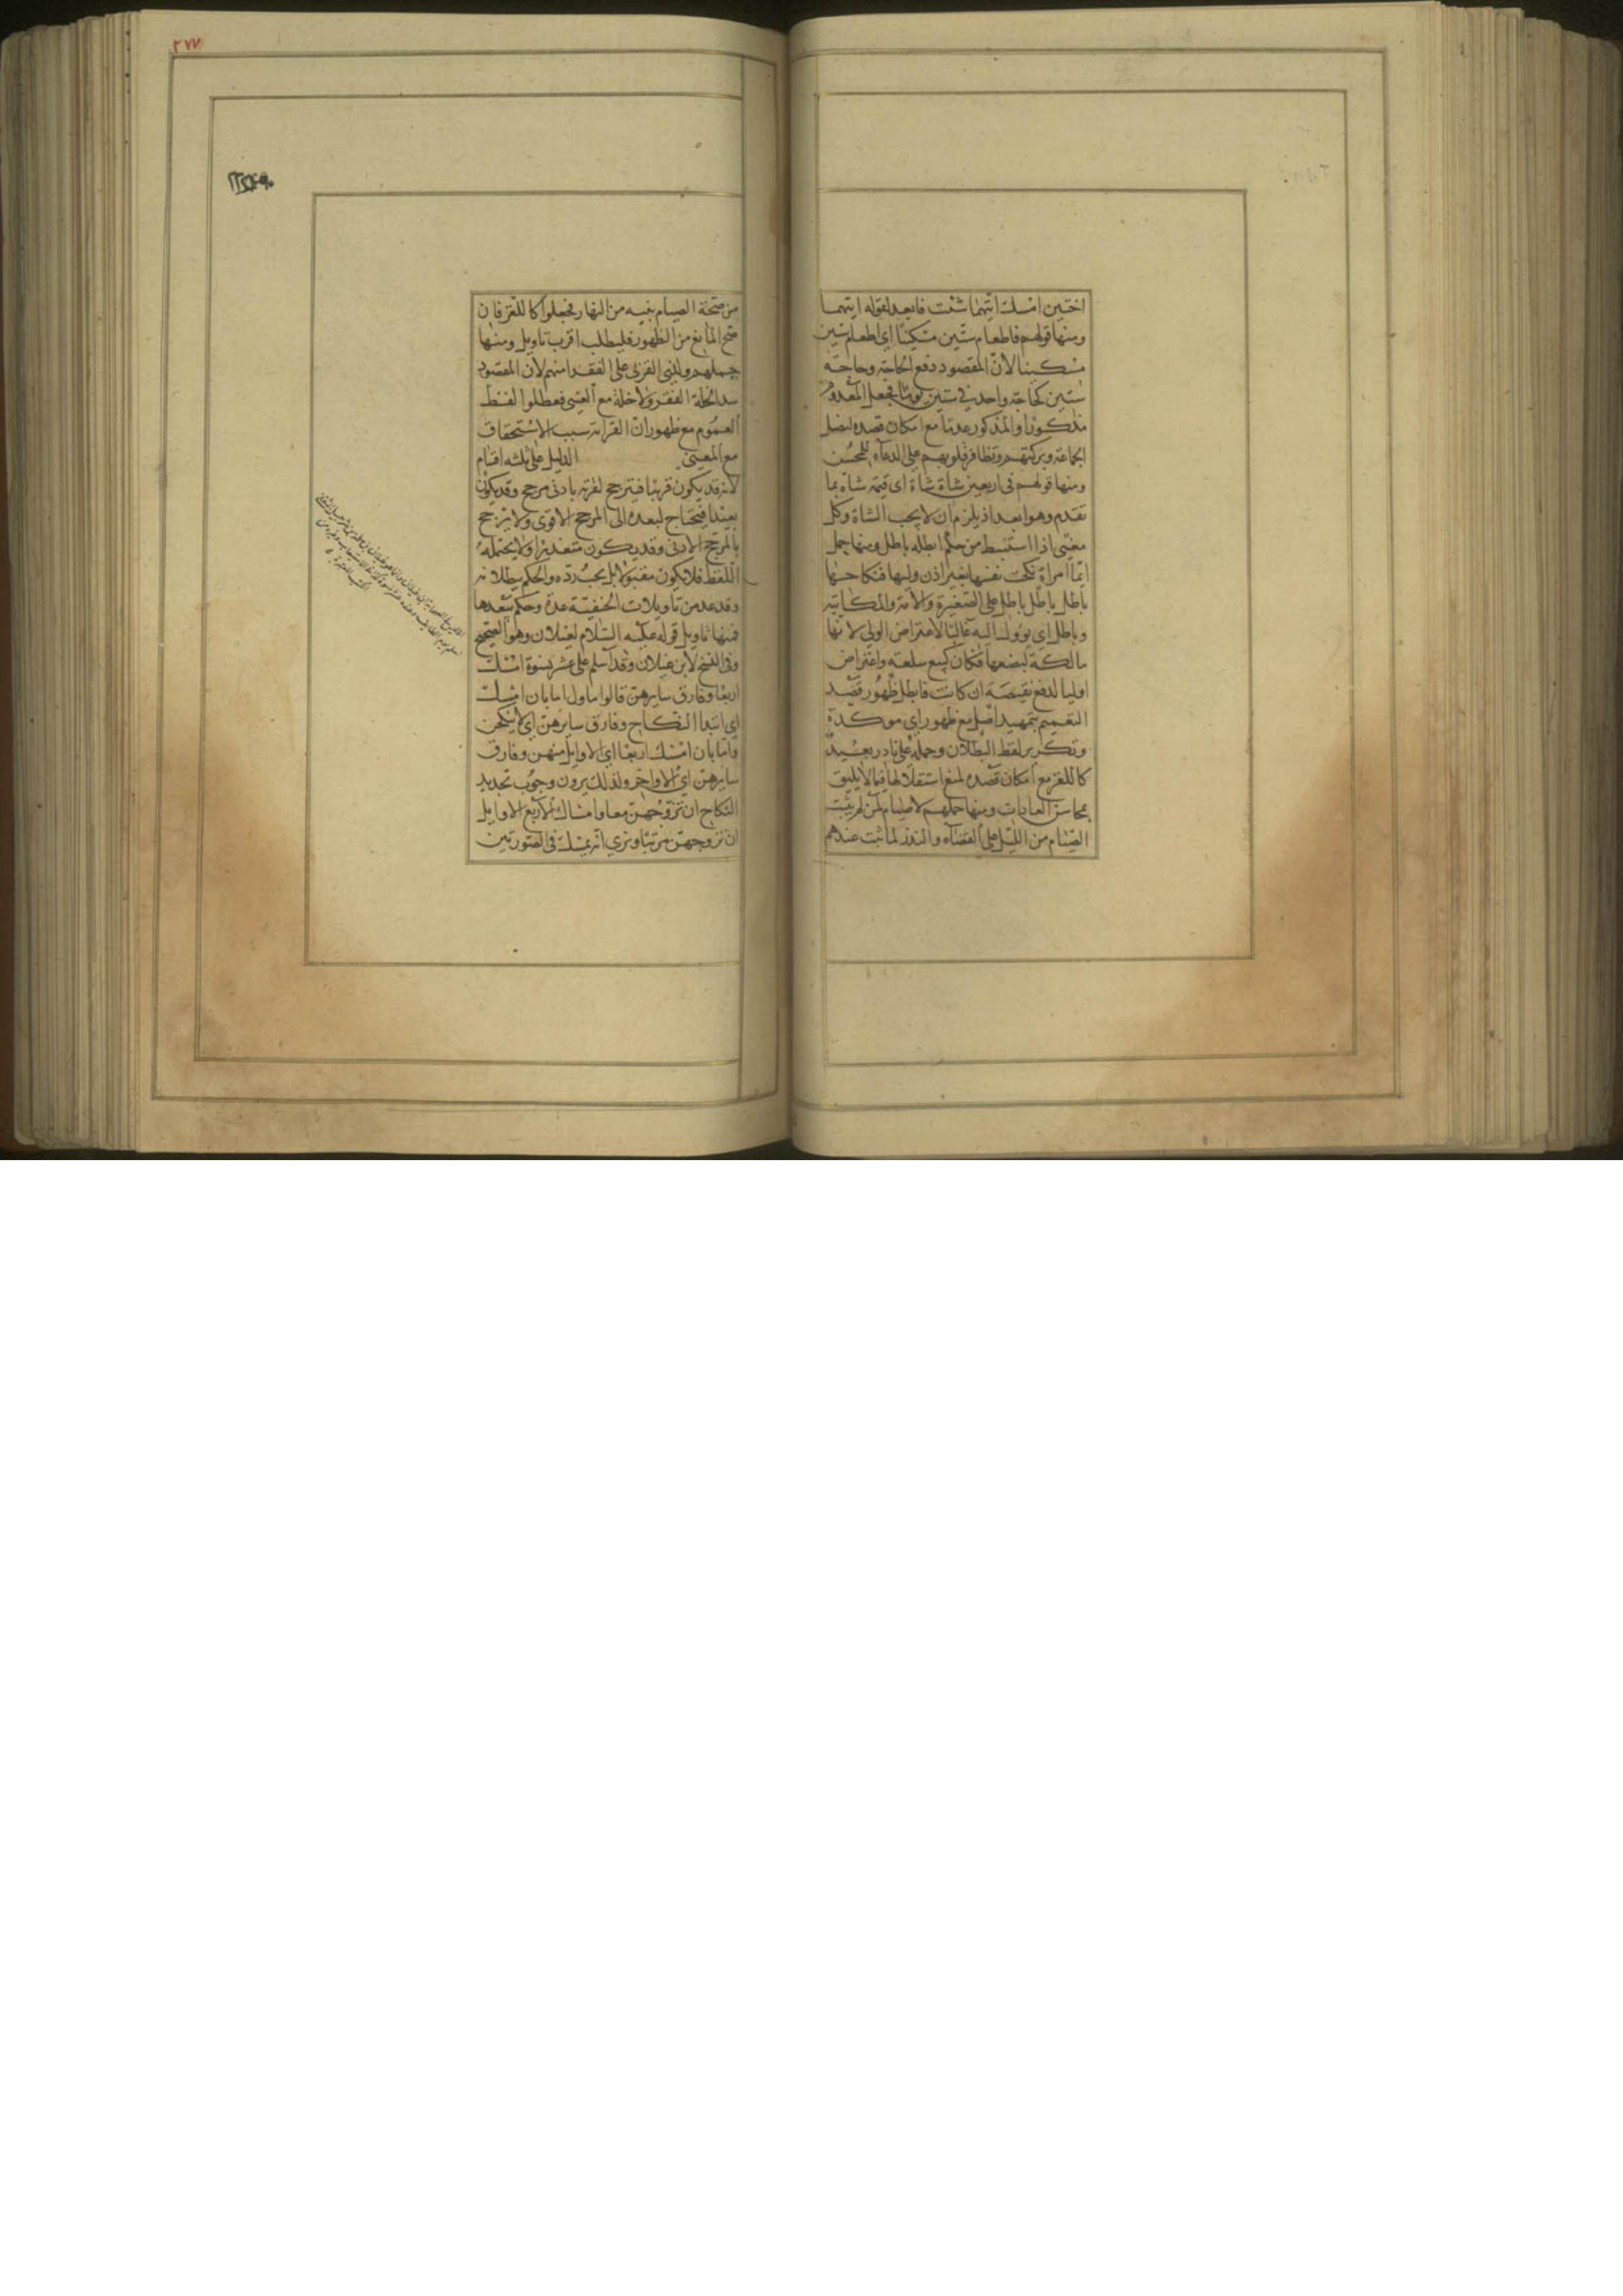 اختين امسك ايتهما شئت فابعد لقوله ايتهما
ومنها قولهم فاطعام ستين مسكينا اي اطعام ستين
مسكينا لان المقصود دفع الحاجة وحاجة
ستين كحاجة واحد في ستين يوما فجعل المعدوم
مذكورا والمذكور عدما مع امكان قصده لفضل
الجماعة وبركتهم وتظافر قلوبهم على الدعاء للمحسن
ومنها قولهم في اربعين شاة شاة اي قيمة شاة بما
تقدم وهو ابعد اذ يلزم ان لا يجب الشاة وكل
معنى اذا استنبط من حكم ابطله باطل ومنها حمل
ايما امراة نكحت نفسها بغير اذن وليها فنكاحها
باطل باطل باطل على الصغيرة والامة والمكاتبة
وباطل اي يوول اليه غالبا لاعتراض الولي لانها
مالكة لبضعها فكان كبيع سلعة واعتراض
اوليا لدفع نقيصة ان كانت فابطل ظهور قصد
التعميم بتمهيد اصل مع ظهور اي موكدة
وتكرير لفظ البطلان وحمله على نادر بعيد
كاللغز مع امكان قصده لمنع استقلالها فيما لا يليق
بمحاسن العادات ومنها حملهم لا صيام لمن لم يبيت
الصيام من الليل على القضاء والنذر لما ثبت عندهم
٢٧٧
من صحة الصيام بنية من النهار فجعلوا كاللغز فان
صح المانع من الظهور فليطلب اقرب تاويل ومنها
حملهم ولذي القربى على الفقرا منهم لان المقصود
سد الخلة الفقر ولا خلة مع الغنى فعطلوا لفظ
العموم مع ظهور ان القرابة سبب الاستحقاق
مع المعنى الدليل على ثلثه اقسام
لانه قد يكون قريبا فيترجح لقربه بادنى مرجح وقد يكون
بعيدا فيحتاج لبعده الى المرجح الاقوى ولا يترجح
بالمرجح الادنى وقد يكون متعذرا ولا يحتمله
اللفظ فلا يكون مقبولا بل يجب رده والحكم ببطلانه
وقد عد من تاويلات الحنفية عدة وحكم ببعدها
فمنها تاويل قوله عليه السلام لغيلان وهو الصحيح
وفي النسخ لابن غيلان وقد اسلم على عشر نسوة امسك
اربعا وفارق سايرهن قالوا ماول اما بان امسك
اي ابتدا النكاح وفارق سايرهن اي لا ينكحن
واما بان امسك اربعا اي الاوايل منهن وفارق
سايرهن اي الاواخر ولذلك يرون وجوب تجديد
النكاح ان تزوجهن معا وامساك الاربع الاوايل
ان تزوجهن مرتبا ونرى انه يمسك في الصورتين